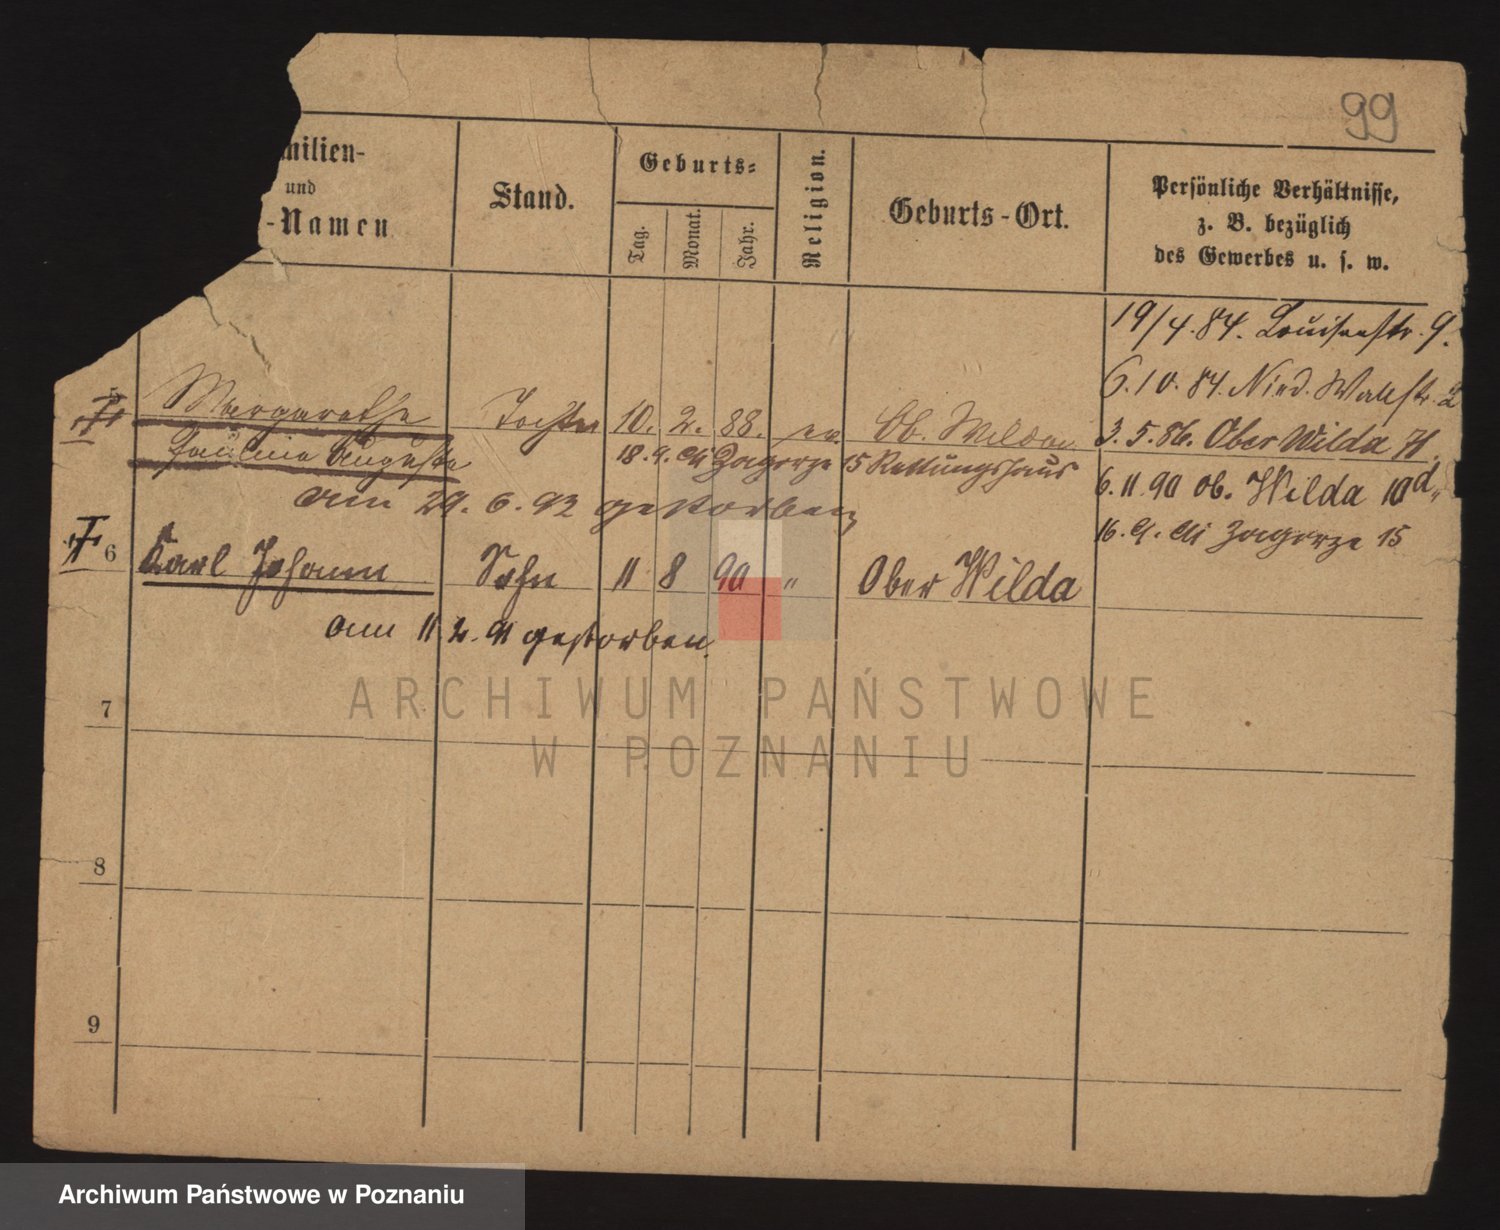 99
milien-
und
-Namen
Stand.
Geburts-
Tag.
Monat.
Jahr.
Religion.
Geburts-Ort.
Persönliche Verhältnisse,
z. B. bezüglich
des Gewerbes u. s. w.
19/4.84. Louisenstr. 9.
6.10.84 Nied. Wallstr. 2
5 Margarethe Tochter 10. 2. 88. ev Ob. Wilda
3.5.86. Ober Wilda 71.
Pauline Auguste 18.9.91 Zagorze 15 Rettungshaus
6.11.90 Ob. Wilda 10d,
am 29. 6. 92 gestorben
16.9.91 Zagorze 15
6 Karl Johann Sohn 11 8 90 " Ober Wilda
am 11 2. 91 gestorben.
7
8
9
ARCHIWUM PAŃSTWOWE
W POZNANIU
Archiwum Państwowe w Poznaniu